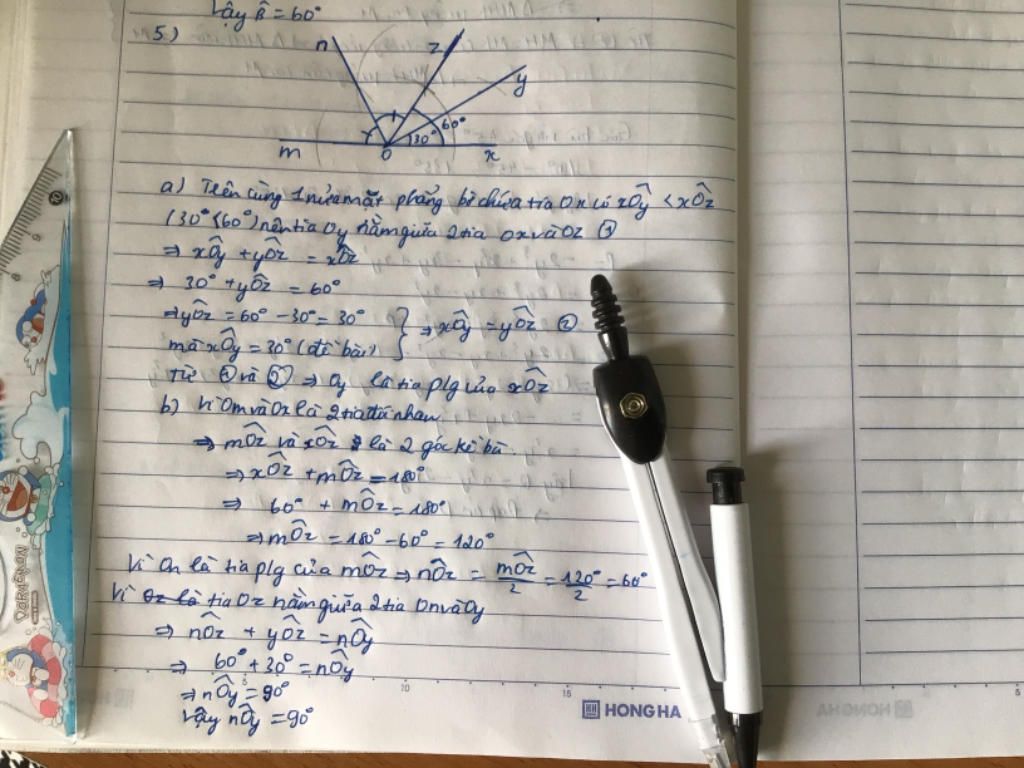 Vậy B̂ = 60°
5)
n
z
y
60°
30°
m
O
x
a) Trên cùng 1 nửa mặt phẳng bờ chứa tia Ox có xÔy < xÔz
(30° < 60°) nên tia Oy nằm giữa 2 tia Ox và Oz ①
⇒ xÔy + yÔz = xÔz
⇒ 30° + yÔz = 60°
⇒ yÔz = 60° - 30° = 30°
mà xÔy = 30° (đề bài)
} ⇒ xÔy = yÔz ②
Từ ① và ② ⇒ Oy là tia plg của xÔz
b) Vì Om và Ox là 2 tia đối nhau
⇒ mÔz và xÔz là 2 góc kề bù
⇒ xÔz + mÔz = 180°
⇒ 60° + mÔz = 180°
⇒ mÔz = 180° - 60° = 120°
Vì On là tia plg của mÔz ⇒ nÔz = mÔz/2 = 120°/2 = 60°
Vì tia Oz nằm giữa 2 tia On và Oy
⇒ nÔz + yÔz = nÔy
⇒ 60° + 30° = nÔy
⇒ nÔy = 90°
Vậy nÔy = 90°
5 10 15
HONG HA
DORAEMON